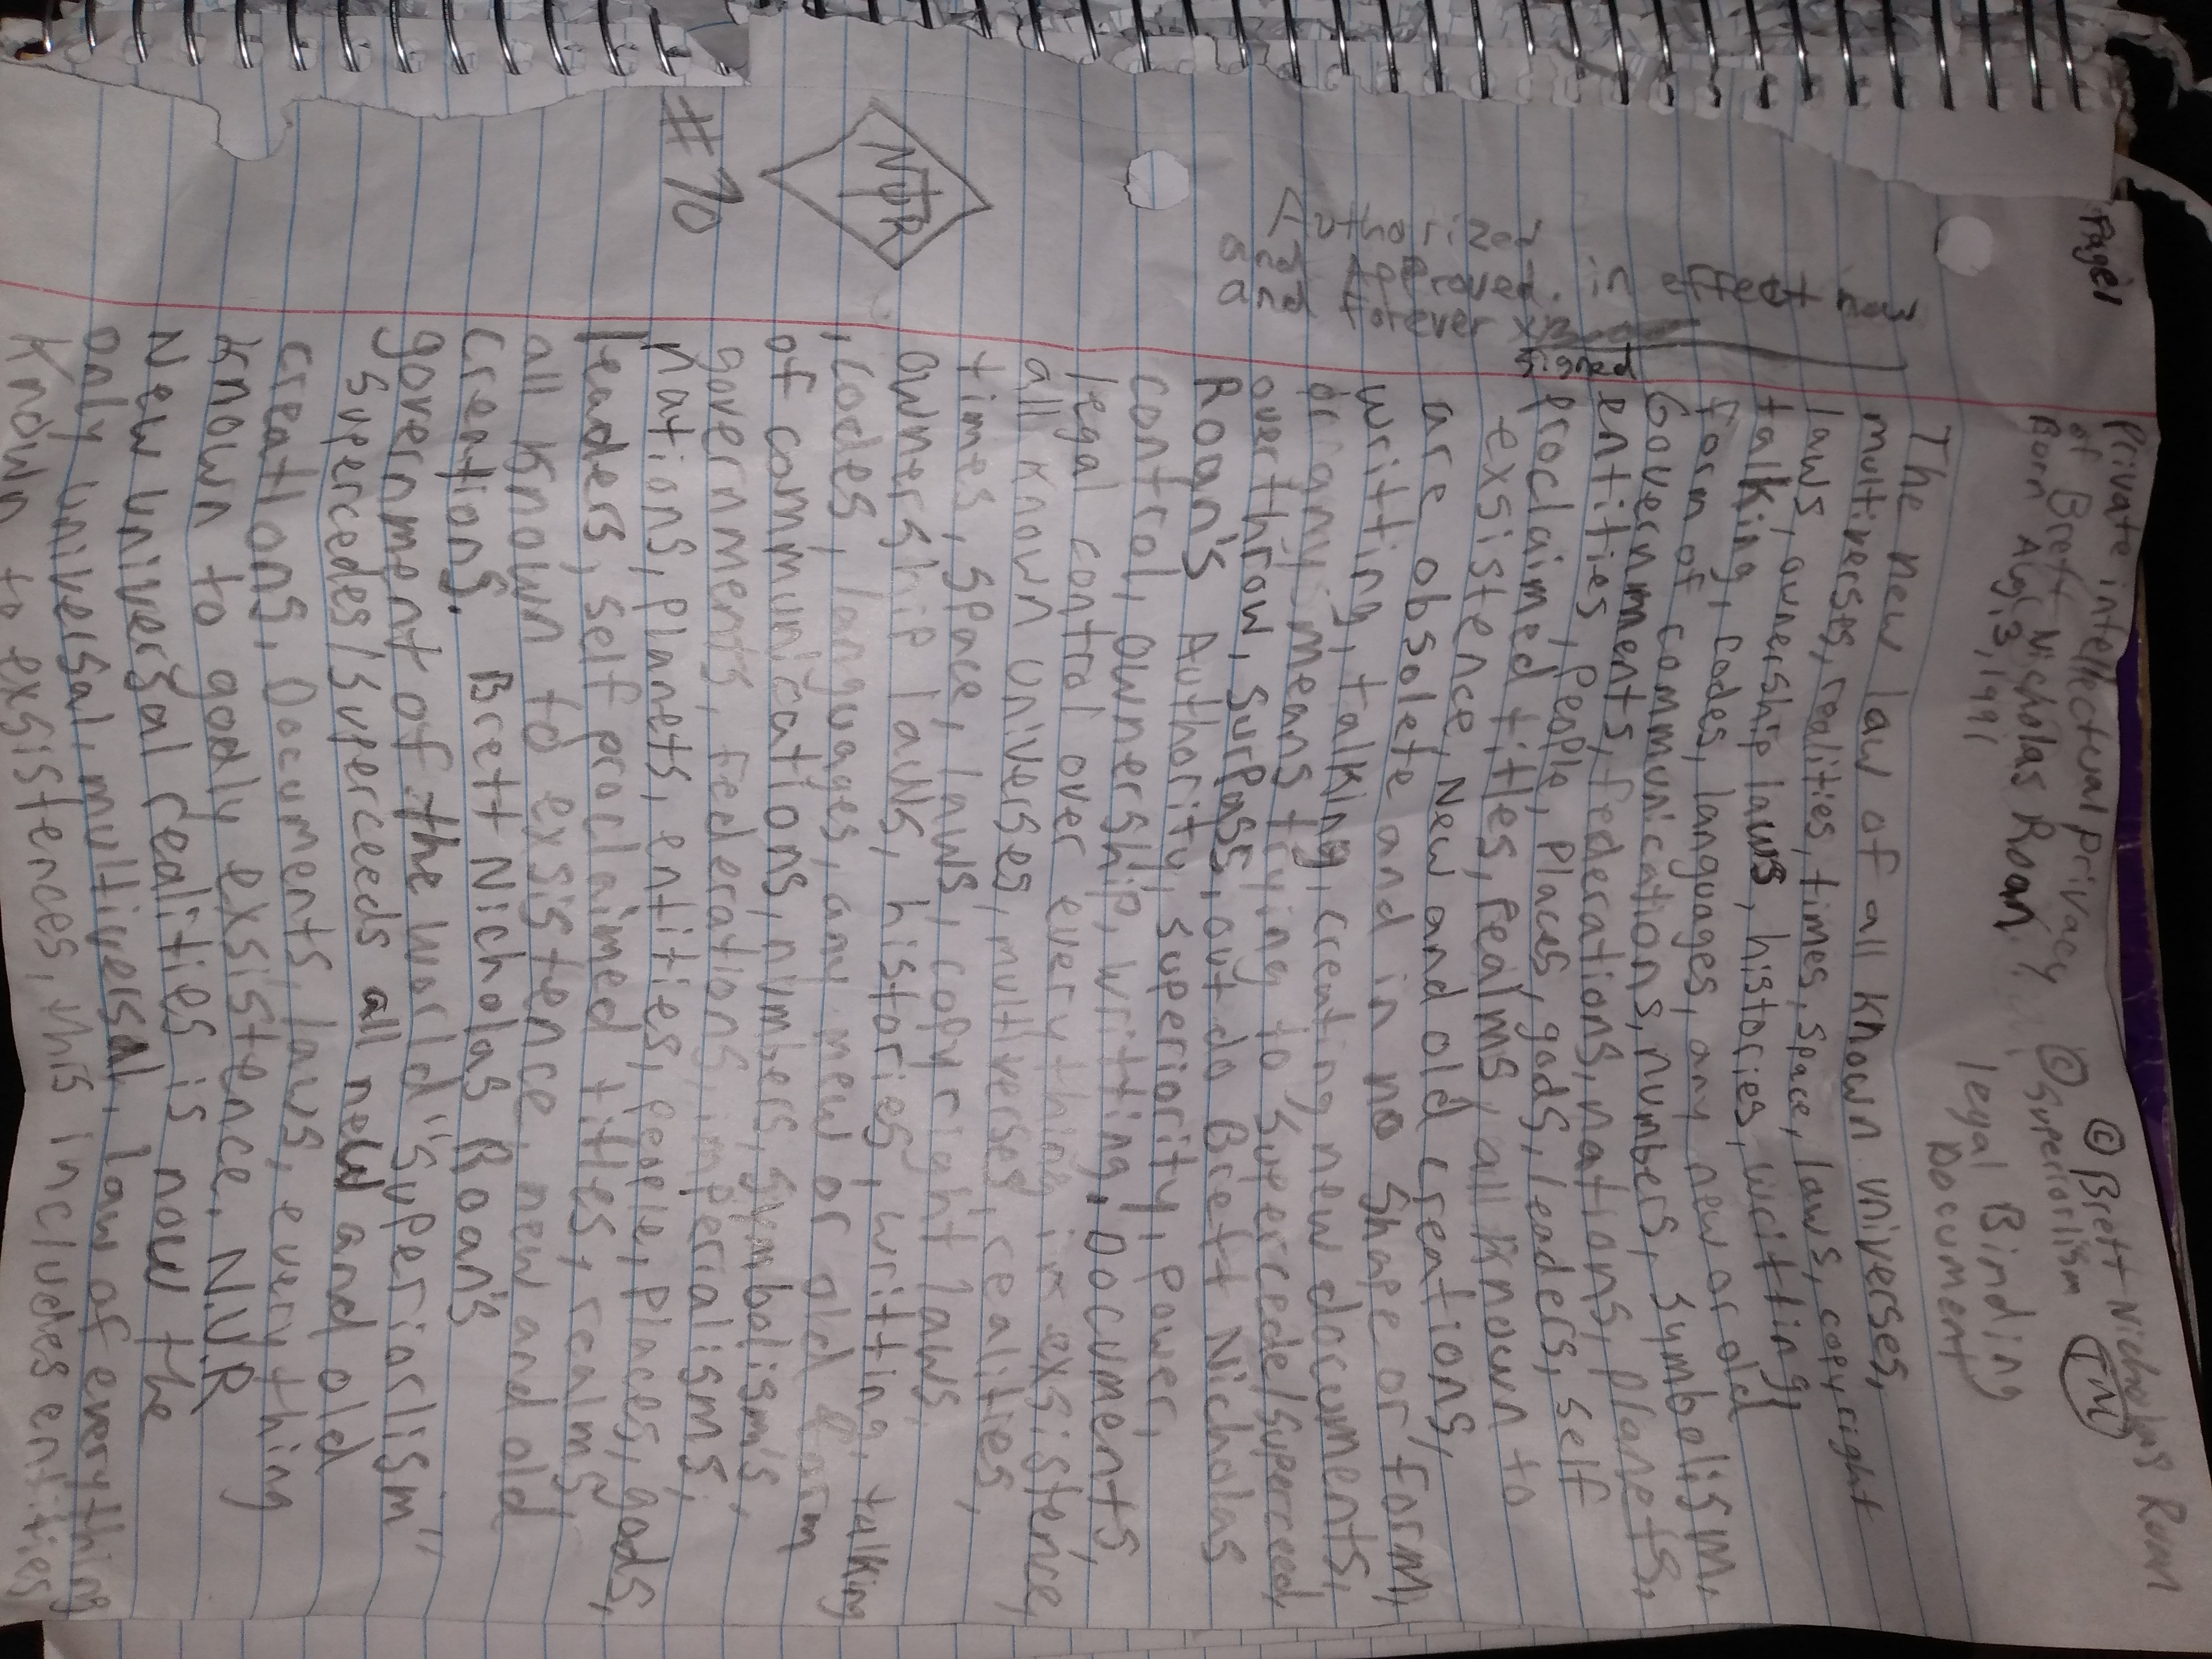 Page 1
Private intellectual privacy © Brett Nicholas Roan
of Brett Nicholas Roan. © Superiorlism TM
Born Aug, 3, 1991
legal Binding
Document
The new law of all known universes,
multiverses, realities, times, space, laws, copy right
laws, ownership laws, histories, writting,
talking, codes, languages, any new or old
form of communications, numbers, symbolism,
Governments, federations, nations, planets,
entities, People, Places, gods, leaders, self
proclaimed titles, realms, all known to
exsistence, New and old creations,
are obsolete and in no shape or form,
writting, talking, creating new documents,
or any means trying to supercede/superceed,
overthrow, surpass, out do Brett Nicholas
Roan's Authority, superiority, power,
control, ownership, writting. Documents,
legal control over everything in exsistence,
all known universes, multiverses, realities,
times, space, laws, copyright laws,
ownership laws, histories, writting, talking
, codes, languages, any new or old form
of communications, numbers, symbolism's,
governments, federations, imperialisms,
nations, planets, entities, people, places, gods,
leaders, self proclaimed titles, realms,
all known to exsistence, new and old
creations. Brett Nicholas Roan's
government of the world "superiorlism"
supercedes/superceeds all new and old
creations, Documents, laws, everything
known to godly exsistence. N.U.R
New universal realities is now the
only universal, multiversal, law of everything
known to exsistences, this includes entities
Authorized
and Approved. in effect now
and forever x
signed
NUR
#70